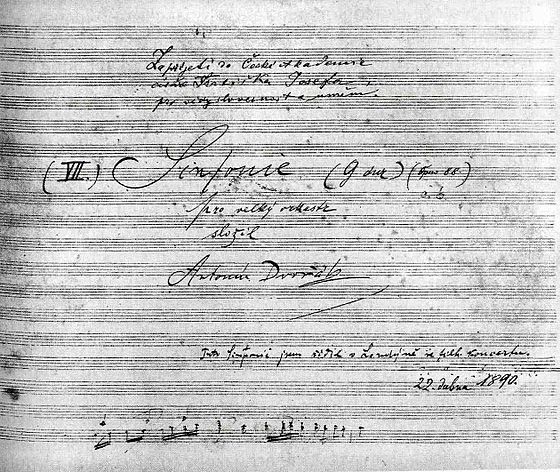 Za přijetí do České Akademie
císaře Františka Josefa
pro vědy, slovesnost a umění.
(VII.) Sinfonie (G dur) (Opus 88)
pro velký orkestr
složil
Antonín Dvořák
Tuto Sinfonii jsem řídil v Londýně ve filh. koncertu.
22. dubna 1890.